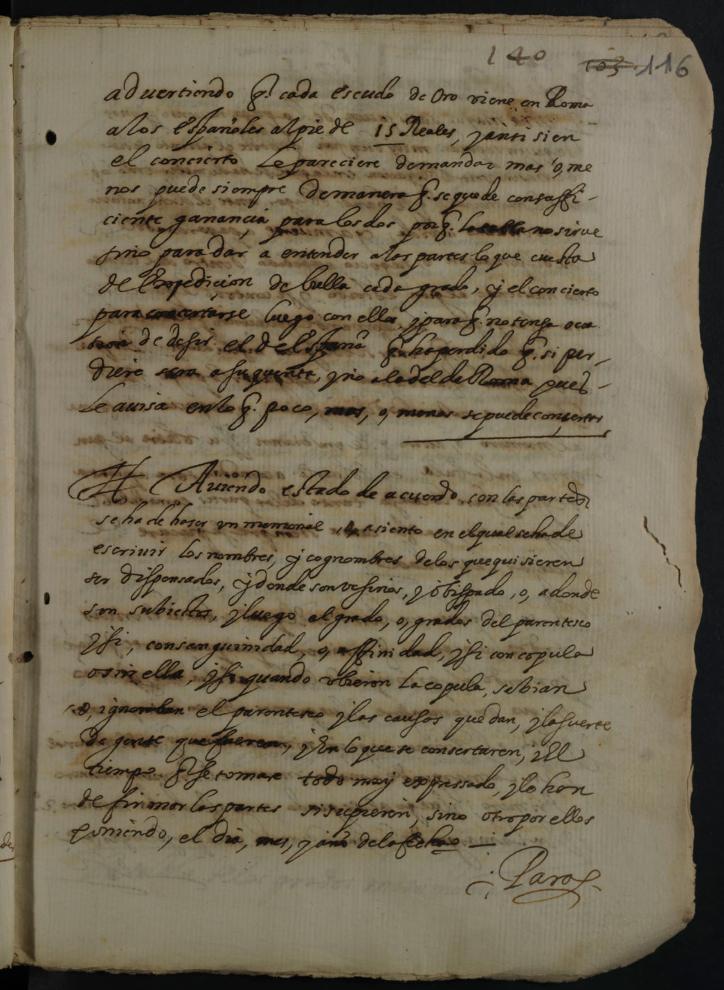 140 103 116
advertiendo q. cada escudo de Oro viene en Roma
a los españoles al pie de 15 Reales, y anti si en
el concierto le pareciere demandar mas o me
nos puede siempre demanera q. se quede con suffi-
ciente ganancia para los dos por q. no sirve
sino para dar a entender a las partes lo que cuesta
de Expedicion de bulla cada grado, y el concierto
para concertarse luego con ella y para q. no tenga oca
de desir el de España q. ha perdido q. si per-
diere sera a su quente, y no a la del de Roma pues
le avisa en lo q. poco, mas, o, menos se puede consertar
Aviendo estado de acuerdo con las partes
se ha de haser un memorial en el qual se ha de
escrivir los nombres, y cognombres de los que quisieren
ser dispensados, y donde son vesinos, y obispado, o, a donde
son subiectos, y luego el grado, o, grados del parentesco
y si, consanguinidad, o, affinidad, y si con copula
o sin ella, y si quando ubieron la copula, sabian
o, ignoraban el parentesco y las causas que dan, y la suerte
de gente que fueren, y en lo que se consertaren, y el
tiempo q. se tomare todo muy expressado, y lo han
de firmar las partes si supieren, sino otro por ellos
poniendo, el dia, mes, y año de la fecha —
Para